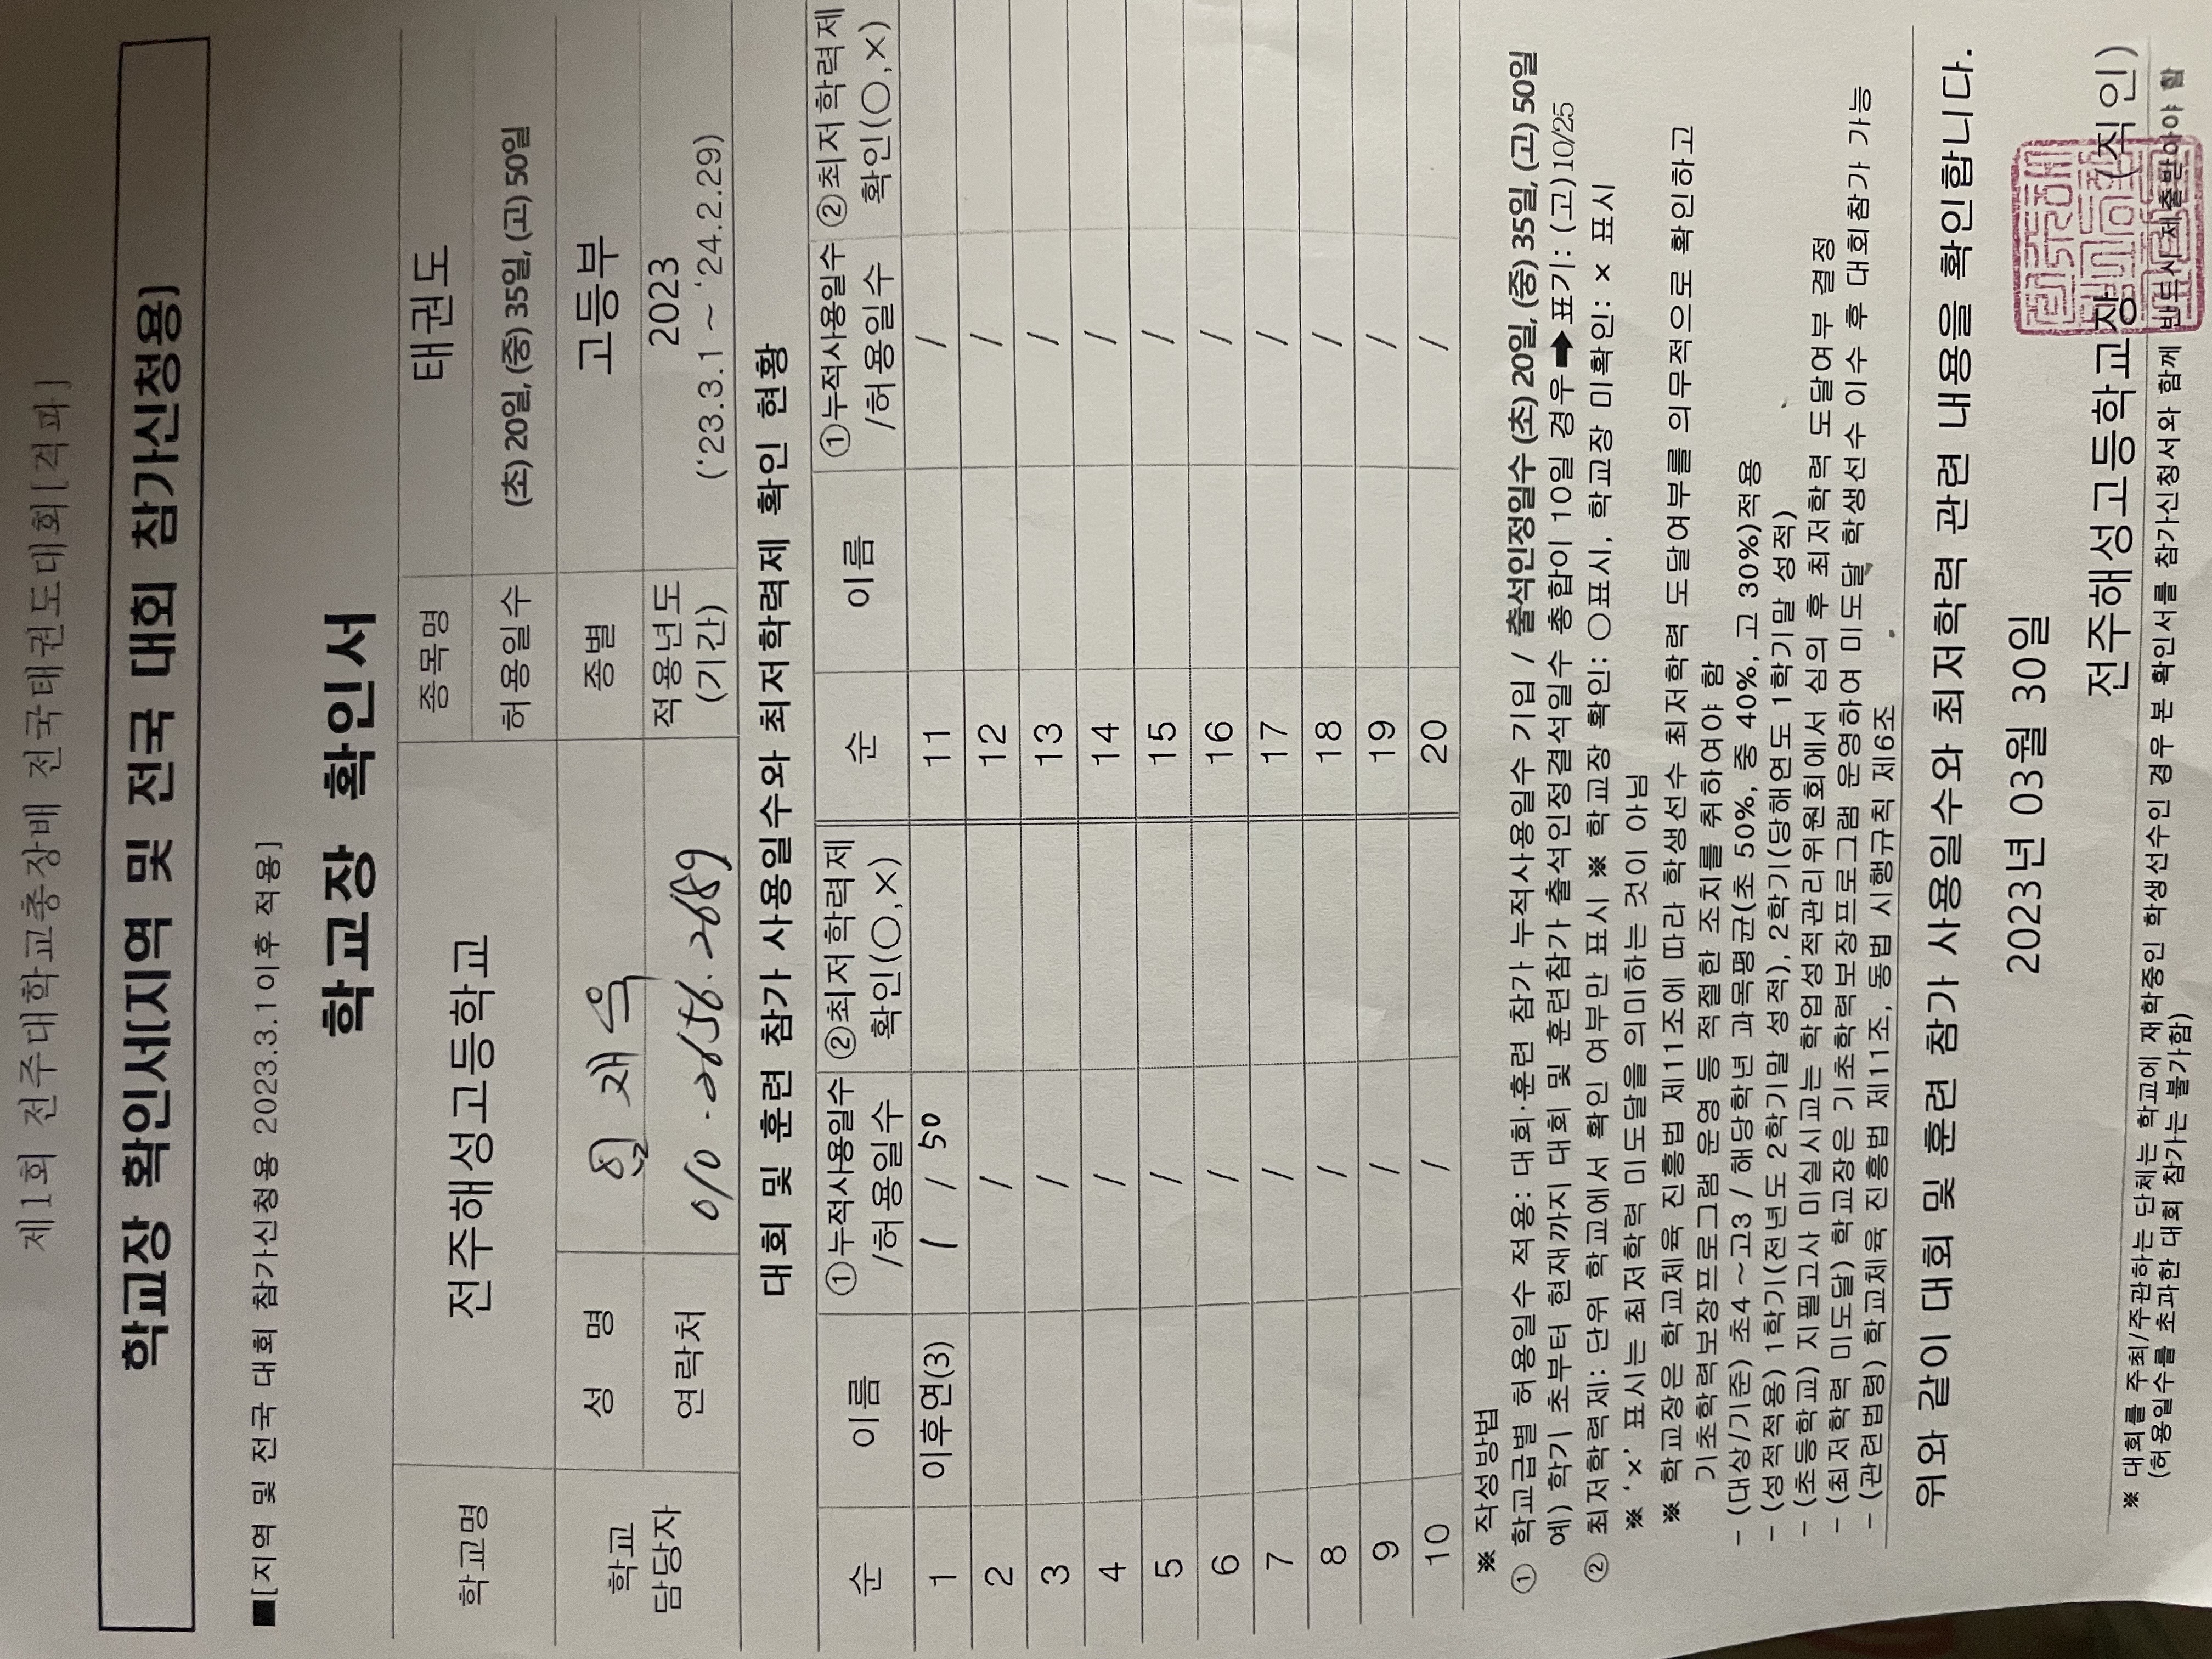 제1회 전주대학교총장배 전국태권도대회[격파]
학교장 확인서[지역 및 전국 대회 참가신청용]
■[지역 및 전국 대회 참가신청용 2023.3.1이후 적용]
학교장 확인서
학교명 전주해성고등학교 종목명 태권도
허용일수 (초) 20일, (중) 35일, (고) 50일
학교 담당자 성 명 재욱 종별 고등부
연락처 010.2656.2689 적용년도 (기간) 2023
('23.3.1 ~ '24.2.29)
대회 및 훈련 참가 사용일수와 최저학력제 확인 현황
순 이름 ①누적사용일수 /허용일수 ②최저학력제 확인(○,×) 순 이름 ①누적사용일수 /허용일수 ②최저학력제 확인(○,×)
1 이후연(3) 1 / 50 11 /
2 / 12 /
3 / 13 /
4 / 14 /
5 / 15 /
6 / 16 /
7 / 17 /
8 / 18 /
9 / 19 /
10 / 20 /
※ 작성방법
① 학교급별 허용일수 적용: 대회·훈련 참가 누적사용일수 기입 / 출석인정일수 (초) 20일, (중) 35일, (고) 50일
예) 학기 초부터 현재까지 대회 및 훈련참가 출석인정결석일수 총합이 10일 경우➡표기: (고)10/25
② 최저학력제: 단위 학교에서 확인 여부만 표시 ※ 학교장 확인: ○표시, 학교장 미확인: × 표시
※ '×' 표시는 최저학력 미도달을 의미하는 것이 아님
※ 학교장은 학교체육 진흥법 제11조에 따라 학생선수 최저학력 도달여부를 의무적으로 확인하고
기초학력보장프로그램 운영 등 적절한 조치를 취하여야 함
- (대상/기준) 초4 ~고3 / 해당학년 과목평균(초 50%, 중 40%, 고 30%)적용
- (성적적용) 1학기(전년도 2학기말 성적), 2학기(당해연도 1학기말 성적)
- (초등학교) 지필고사 미실시교는 학업성적관리위원회에서 심의 후 최저학력 도달여부 결정
- (최저학력 미도달) 학교장은 기초학력보장프로그램 운영하여 미도달 학생선수 이수 후 대회참가 가능
- (관련법령) 학교체육 진흥법 제11조, 동법 시행규칙 제6조
위와 같이 대회 및 훈련 참가 사용일수와 최저학력 관련 내용을 확인합니다.
2023년 03월 30일
전주해성고등학교장 (직인)
※ 대회를 주최/주관하는 단체는 학교에 재학중인 학생선수인 경우 본 확인서를 참가신청서와 함께 반드시 제출받아야 함
(허용일수를 초과한 대회 참가는 불가함)